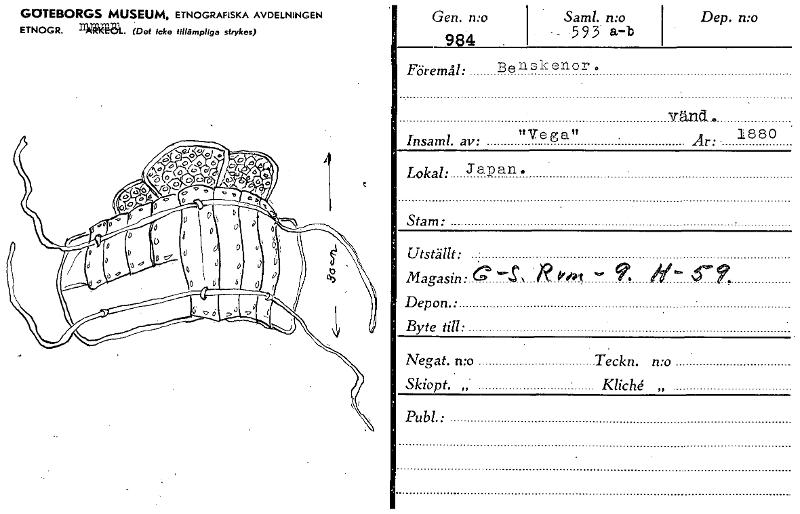 GÖTEBORGS MUSEUM, ETNOGRAFISKA AVDELNINGEN
ETNOGR. ARKEOL. (Det icke tillämpliga strykes)
30 cm
Gen. n:o
984
Saml. n:o
593 a-b
Dep. n:o
Föremål: Benskenor.
vänd.
Insaml. av: "Vega" År: 1880
Lokal: Japan.
Stam:
Utställt:
Magasin: G-S. Rum - 9. H-59.
Depon.:
Byte till:
Negat. n:o Teckn. n:o
Skiopt. „ Kliché „
Publ.: